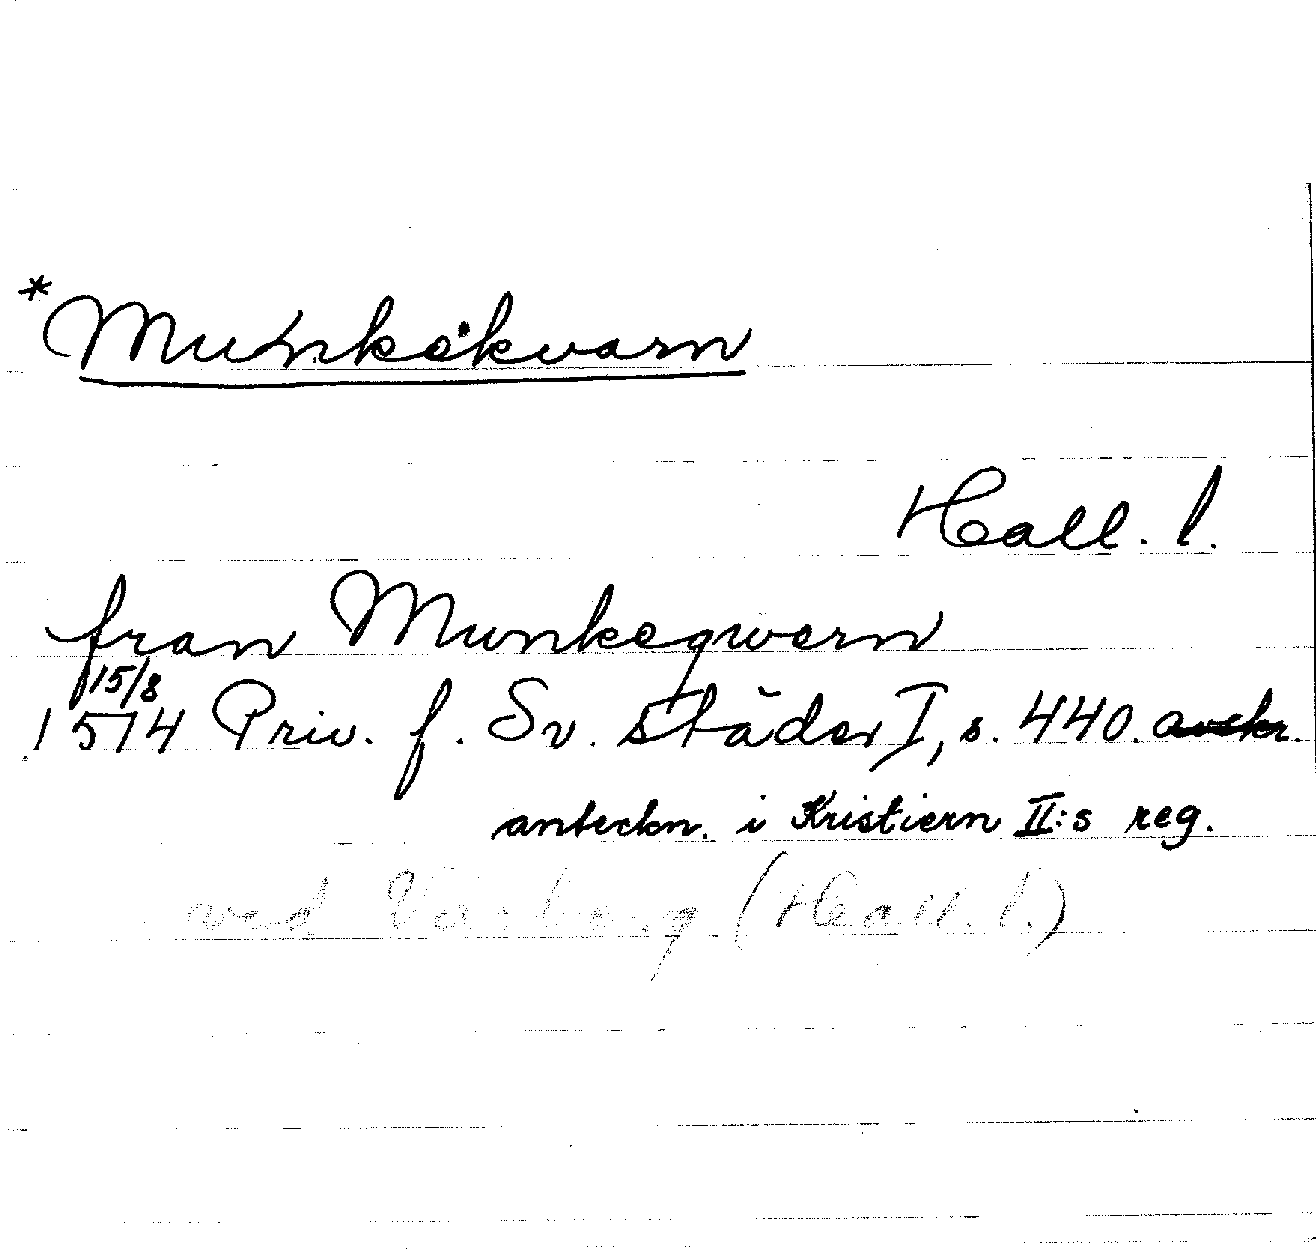 *Munkekvarn
Hall. l.
fran Munkeqwern
15/8
1514 Priv. f. Sv. städer I, s. 440.
anteckn. i Kristiern II:s reg.
ved (Hall. l.)